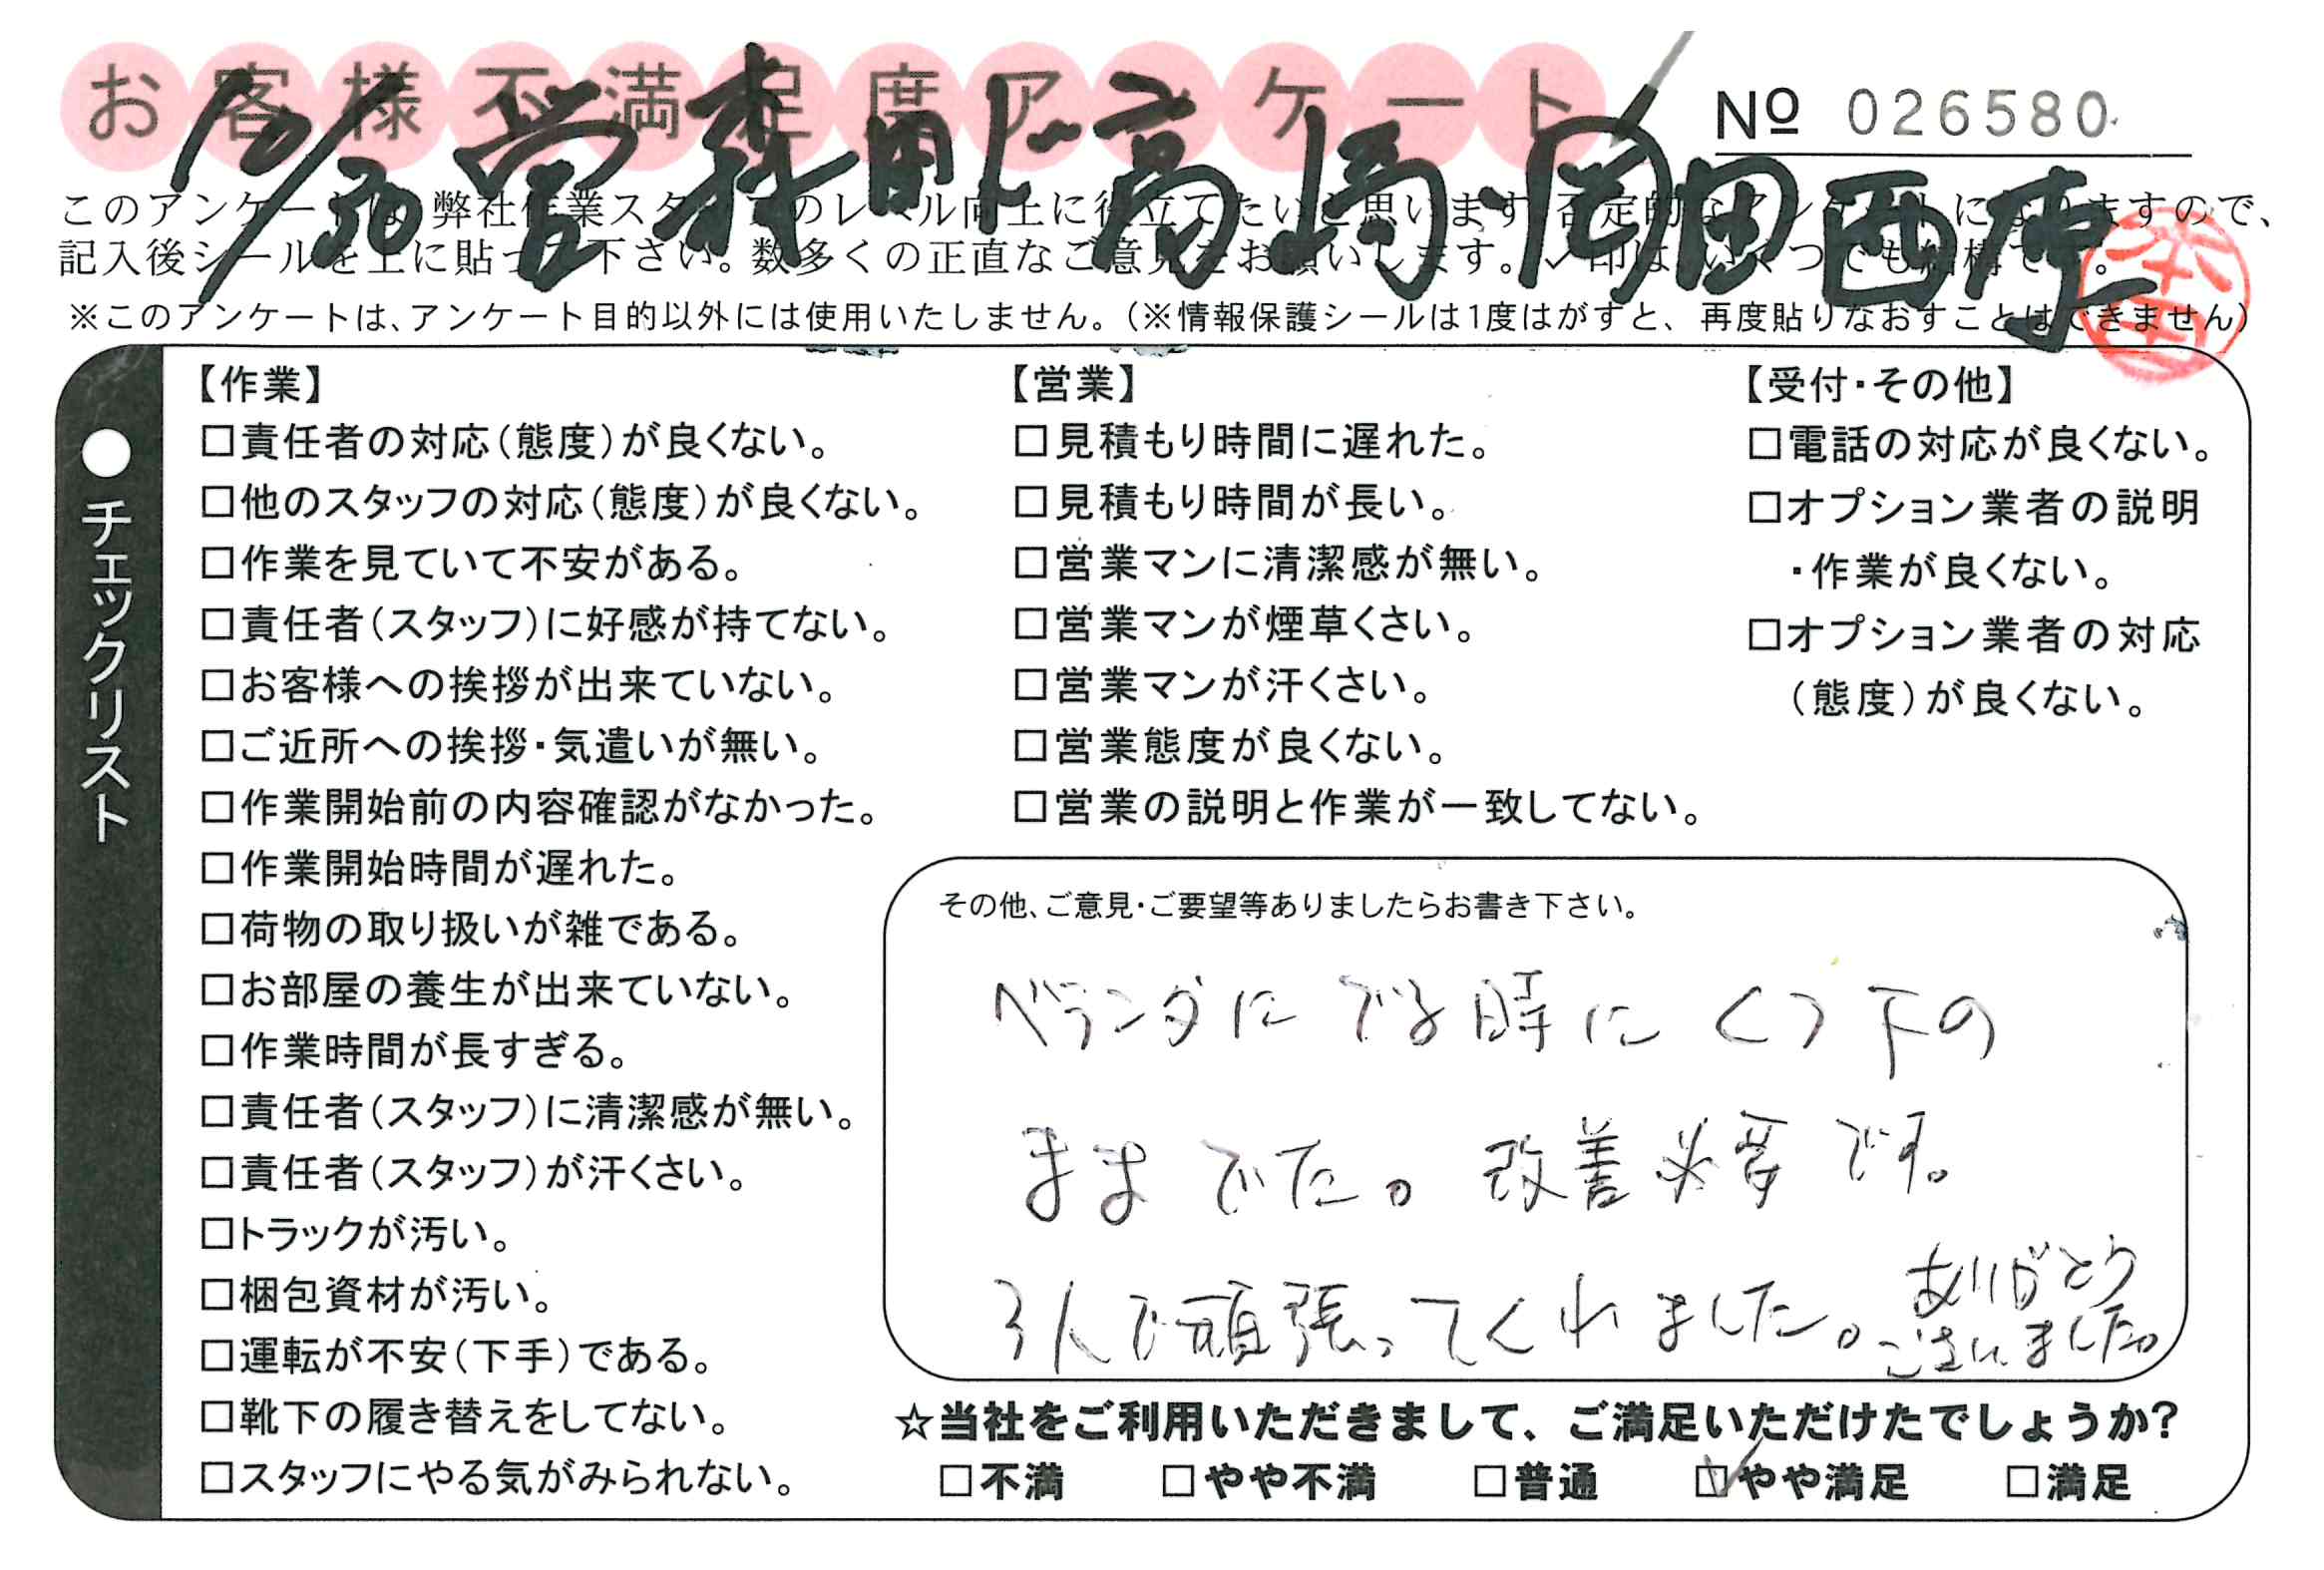 お客様不満足度アンケート
№ 026580
10/30 営 森町ドー高崎、岡田西車
このアンケートは、弊社作業スタッフのレベル向上に役立てたいと思います。否定的なアンケートになりますので、
記入後シールを上に貼って下さい。数多くの正直なご意見をお願いします。✓印は、いくつでも結構です。
※このアンケートは、アンケート目的以外には使用いたしません。（※情報保護シールは1度はがすと、再度貼りなおすことはできません）
●チェックリスト
【作業】
□責任者の対応（態度）が良くない。
□他のスタッフの対応（態度）が良くない。
□作業を見ていて不安がある。
□責任者（スタッフ）に好感が持てない。
□お客様への挨拶が出来ていない。
□ご近所への挨拶・気遣いが無い。
□作業開始前の内容確認がなかった。
□作業開始時間が遅れた。
□荷物の取り扱いが雑である。
□お部屋の養生が出来ていない。
□作業時間が長すぎる。
□責任者（スタッフ）に清潔感が無い。
□責任者（スタッフ）が汗くさい。
□トラックが汚い。
□梱包資材が汚い。
□運転が不安（下手）である。
□靴下の履き替えをしてない。
□スタッフにやる気がみられない。
【営業】
□見積もり時間に遅れた。
□見積もり時間が長い。
□営業マンに清潔感が無い。
□営業マンが煙草くさい。
□営業マンが汗くさい。
□営業態度が良くない。
□営業の説明と作業が一致してない。
【受付・その他】
□電話の対応が良くない。
□オプション業者の説明
・作業が良くない。
□オプション業者の対応
（態度）が良くない。
その他、ご意見・ご要望等ありましたらお書き下さい。
ベランダに でる時に くつ下の
まま でた。改善必要です。
3人で頑張ってくれました。ありがとう
ございました。
☆当社をご利用いただきまして、ご満足いただけたでしょうか？
□不満 □やや不満 □普通 ☑やや満足 □満足